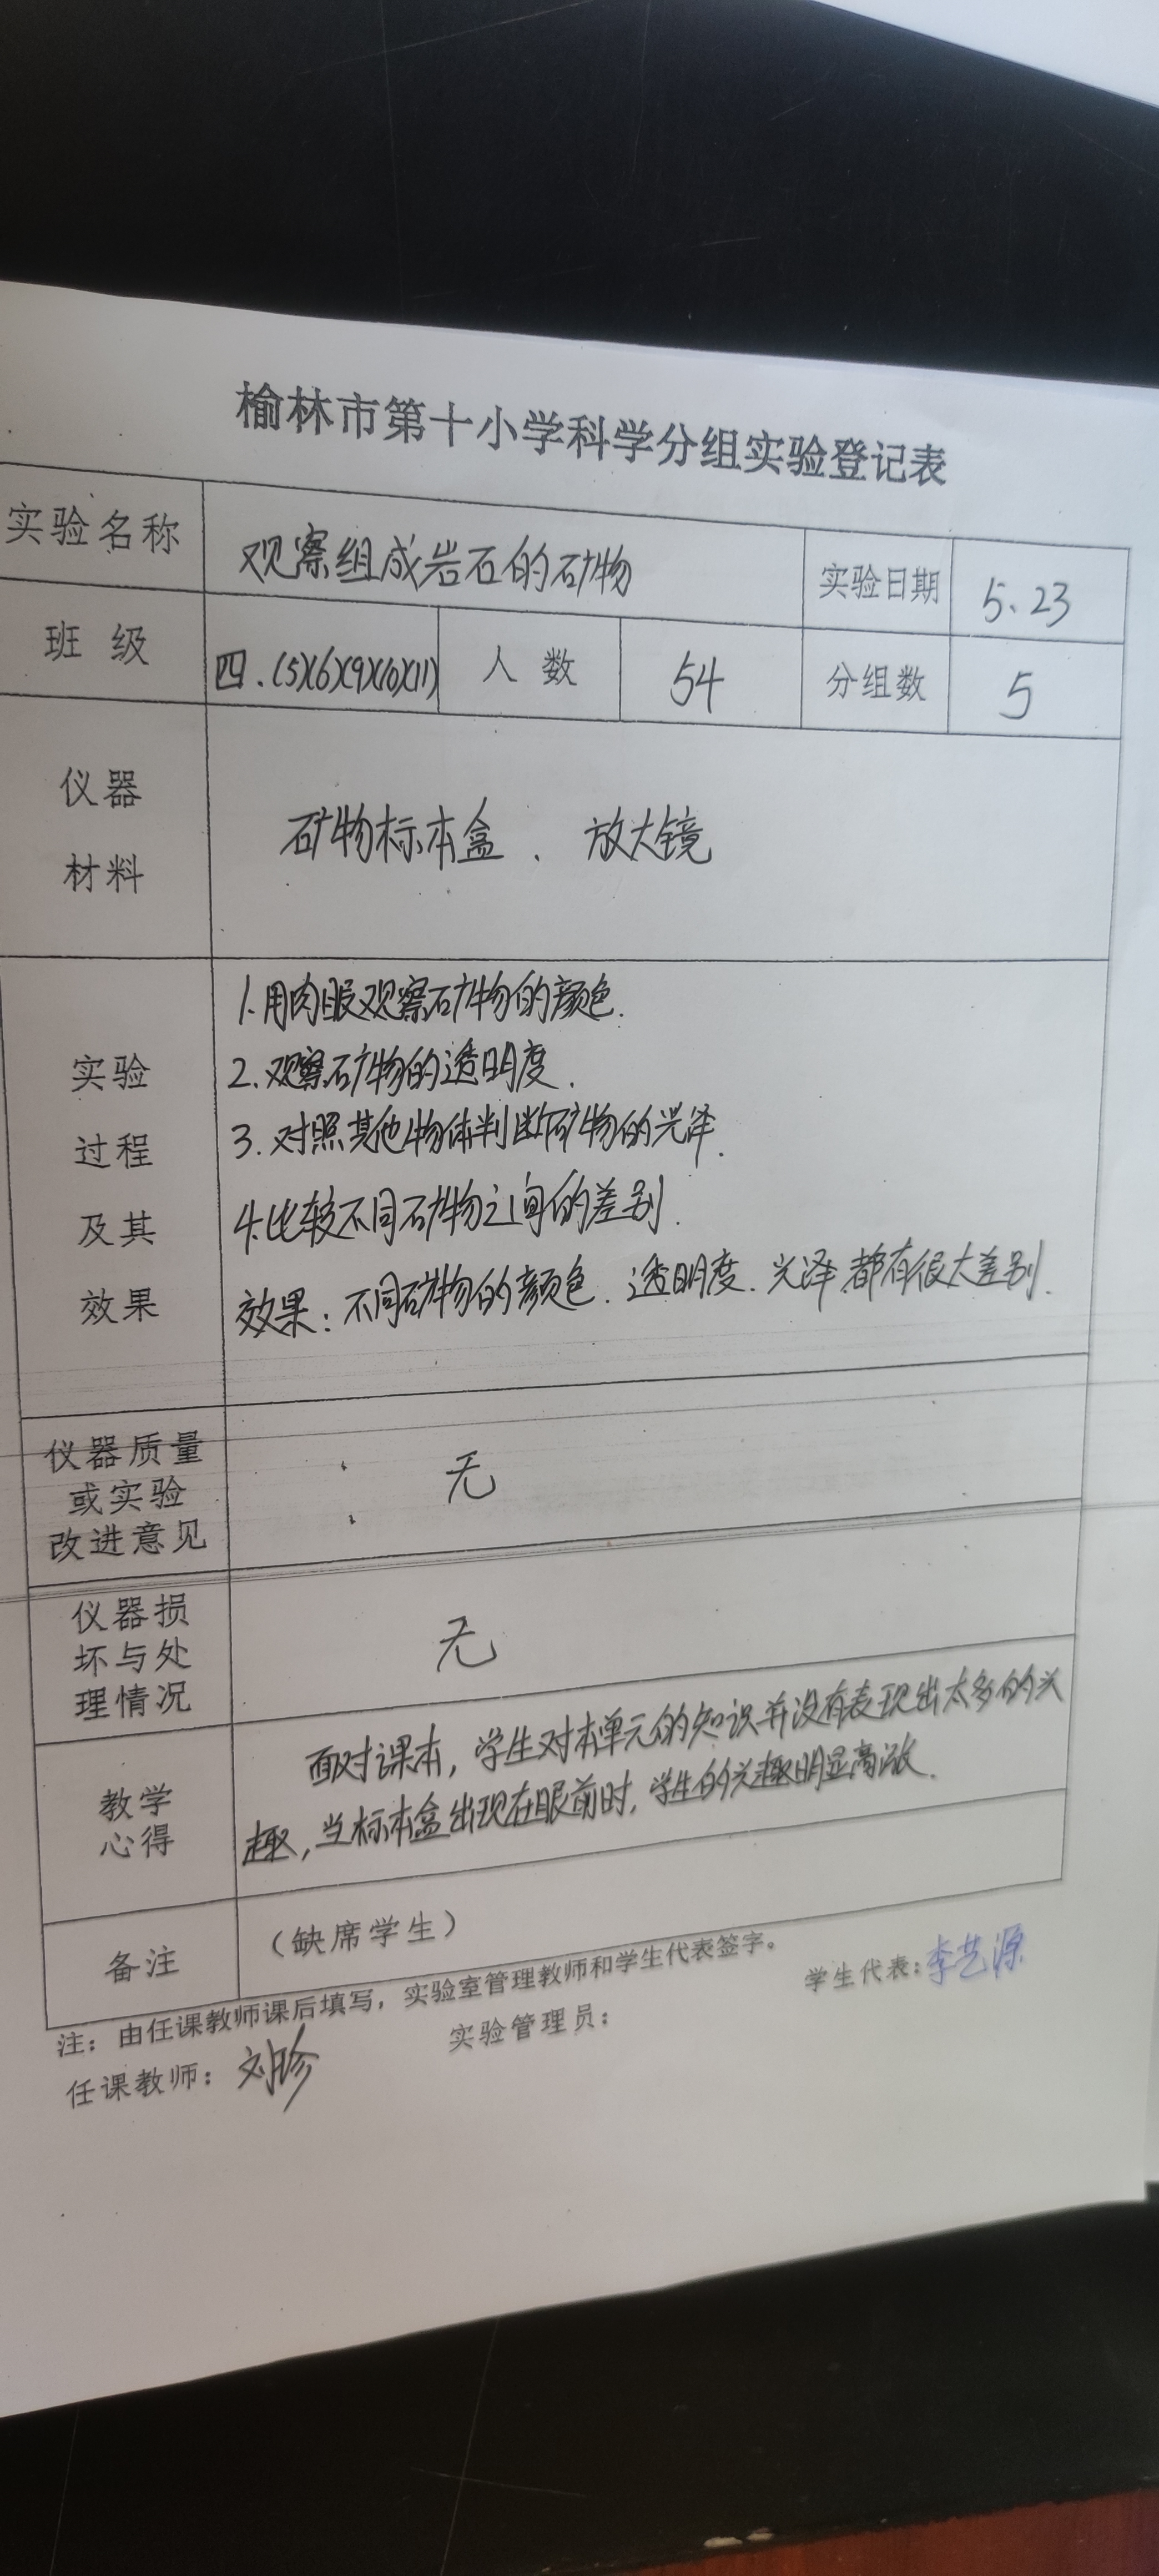 榆林市第十小学科学分组实验登记表
实验名称 观察组成岩石的矿物 实验日期 5.23
班 级 四.(5)(6)(9)(10)(11) 人 数 54 分组数 5
仪器
材料
矿物标本盒、放大镜
实验
过程
及其
效果
1.用肉眼观察矿物的颜色.
2.观察矿物的透明度.
3.对照其他物体判断矿物的光泽.
4.比较不同矿物之间的差别.
效果:不同矿物的颜色、透明度、光泽都有很大差别.
仪器质量
或实验
改进意见
无
仪器损
坏与处
理情况
无
教学
心得
面对课本,学生对本单元的知识并没有表现出太多的兴
趣,当标本盒出现在眼前时,学生的兴趣明显高涨.
备注 (缺席学生)
注:由任课教师课后填写,实验室管理教师和学生代表签字。
任课教师:刘珍 实验管理员: 学生代表:李艺源